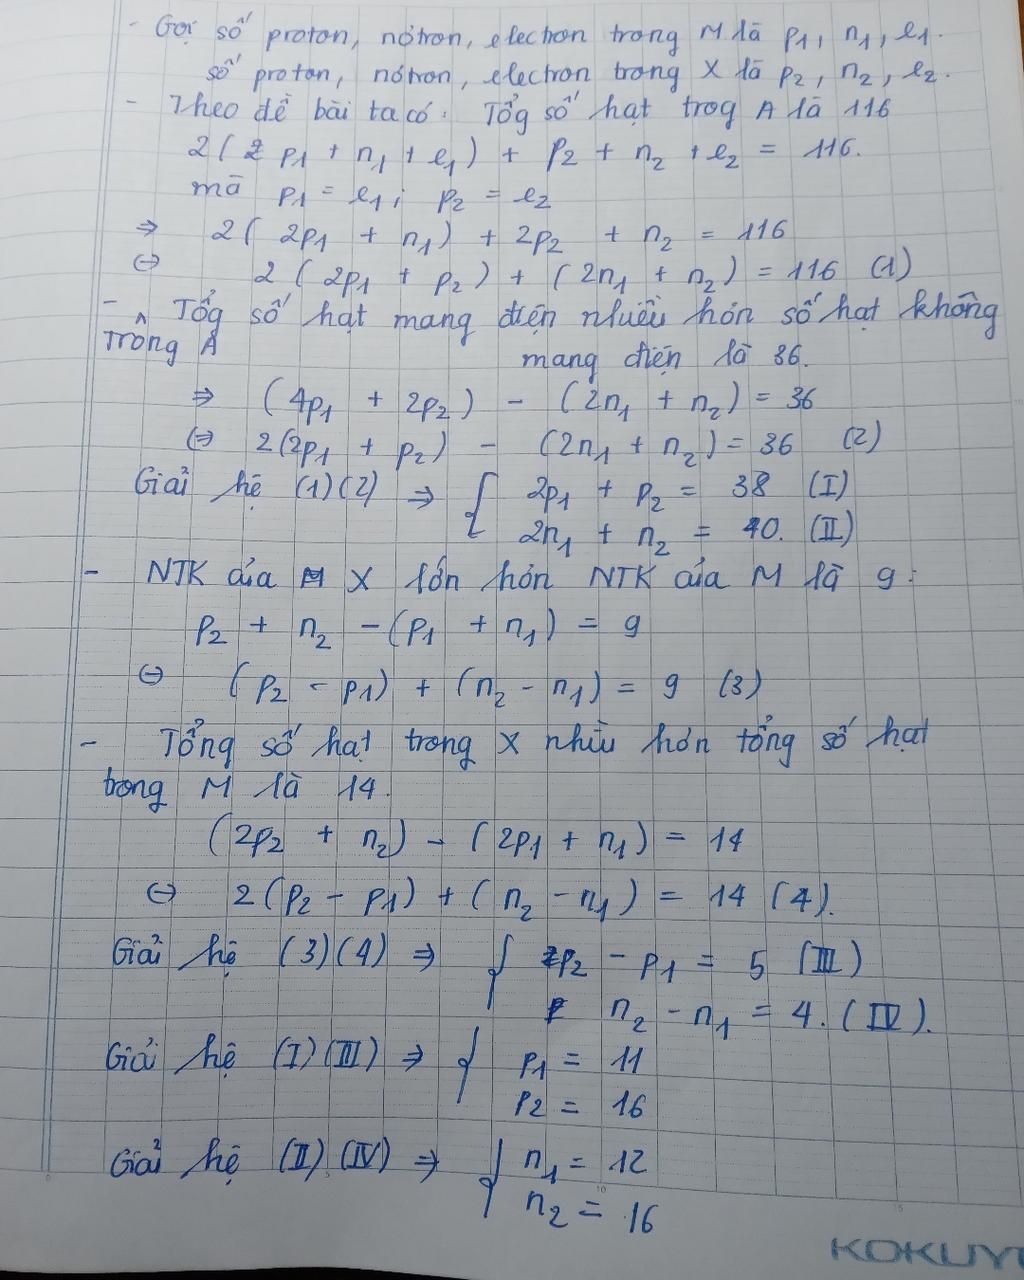 - Gọi số proton, nơtron, electron trong M là p1, n1, e1.
số proton, nơtron, electron trong X là p2, n2, e2.
- Theo đề bài ta có: Tổg số hạt trog A là 116
2(2 p1 + n1 + e1) + p2 + n2 + e2 = 116.
mà p1 = e1; p2 = e2
⇒ 2( 2p1 + n1) + 2p2 + n2 = 116
⇔ 2 ( 2p1 + p2) + (2n1 + n2) = 116 (1)
- Tổg số hạt mang điện nhiều hơn số hạt không
Trong A mang điện là 36.
⇒ (4p1 + 2p2) - (2n1 + n2) = 36
⇔ 2(2p1 + p2) - (2n1 + n2) = 36 (2)
Giải hệ (1)(2) ⇒ { 2p1 + p2 = 38 (I)
2n1 + n2 = 40. (II)
- NTK của X lớn hơn NTK của M là 9:
p2 + n2 - (p1 + n1) = 9
⇔ (p2 - p1) + (n2 - n1) = 9 (3)
- Tổng số hạt trong X nhiều hơn tổng số hạt
trong M là 14.
(2p2 + n2) - (2p1 + n1) = 14
⇔ 2(p2 - p1) + (n2 - n1) = 14 (4).
Giải hệ (3)(4) ⇒ { p2 - p1 = 5 (III)
n2 - n1 = 4. (IV).
Giải hệ (I)(III) ⇒ { p1 = 11
p2 = 16
Giải hệ (II)(IV) ⇒ { n1 = 12
n2 = 16